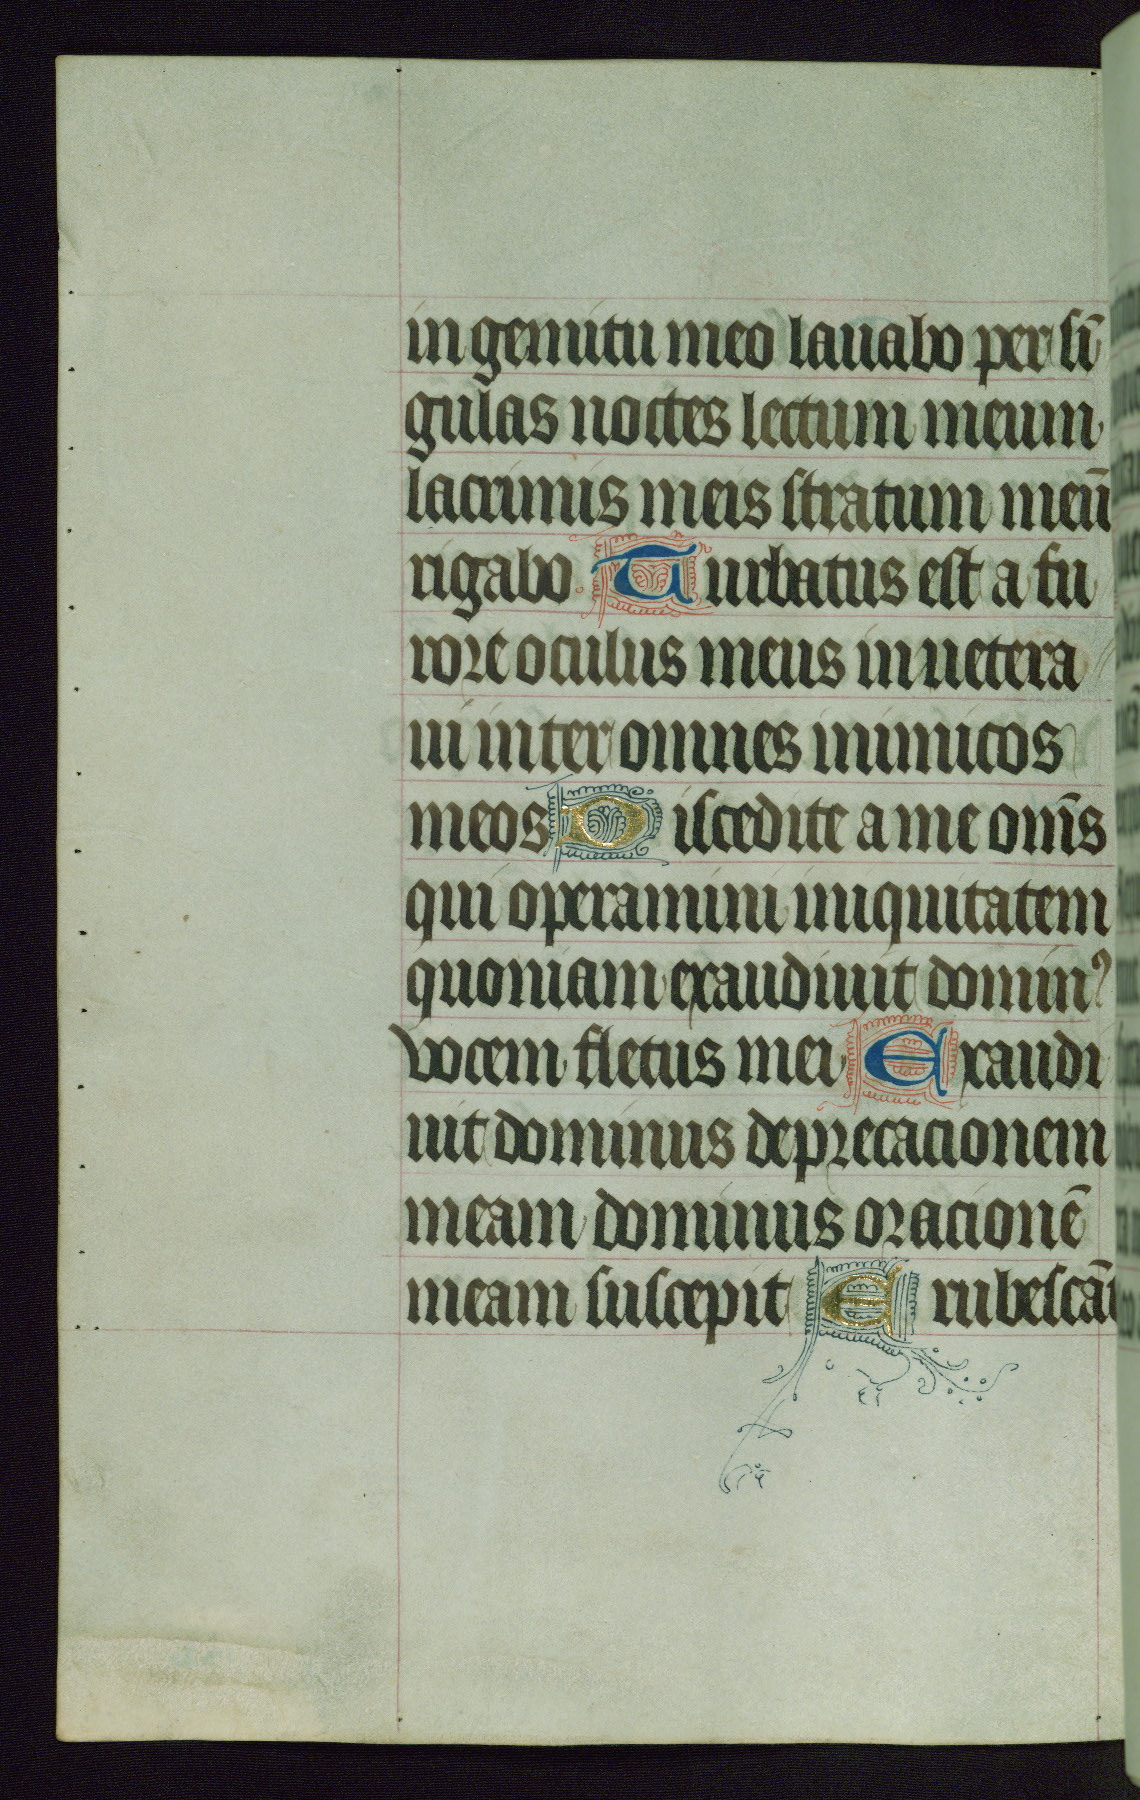 in gemitu meo lauabo per si̅
gulas noctes lectum meum
lacrimis meis stratum meu̅
rigabo. Turbatus est a fu
rore oculus meus inuetera
ui inter omnes inimicos
meos Discedite a me om̅s
qui operamini iniquitatem
quoniam exaudiuit dominꝰ
vocem fletus mei Exaudi
uit dominus deprecacionem
meam dominus oracione̅
meam suscepit Erubesca̅t